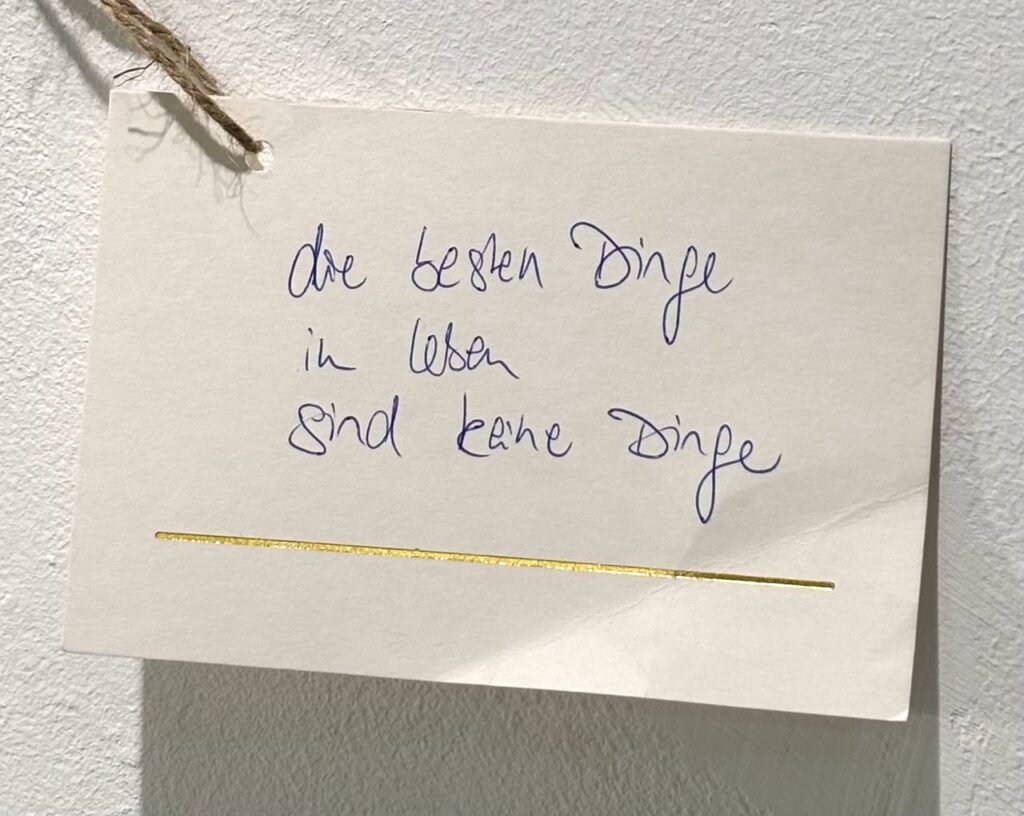 die besten Dinge
in leben
sind keine Dinge